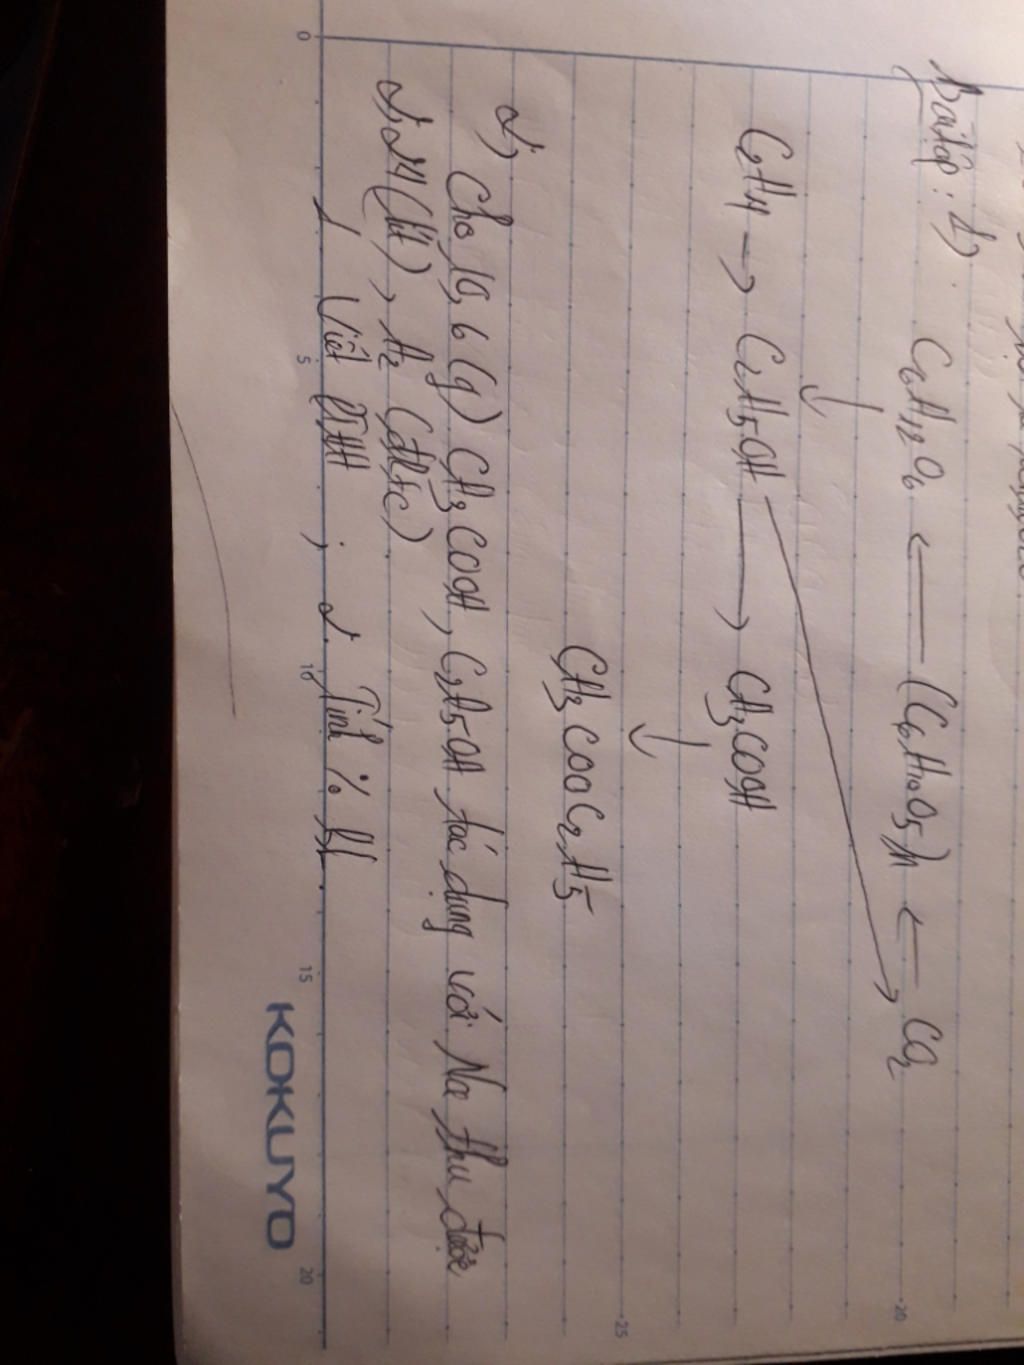 Bài tập: 1) C6H12O6 ← (C6H10O5)n ← CO2
↓
C2H4 → C2H5OH → CH3COOH
↓
CH3COOC2H5
2)
Cho 10,6 (g) CH3COOH, C2H5OH tác dụng với Na thu được
2,24 (lít), H2 (đktc)
1, Viết PTHH ; 2. Tính %
0 5 10 15 20
20
25
KOKUYO